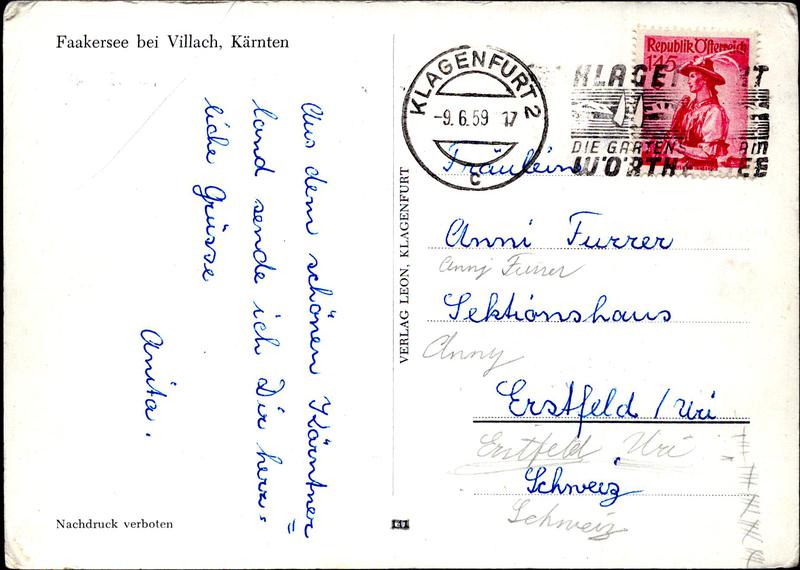 Faakersee bei Villach, Kärnten
Aus dem schönen Kärntner=
land sende ich Dir herz-
liche Grüsse
Anita.
Nachdruck verboten
VERLAG LEON, KLAGENFURT
KLAGENFURT 2
-9. 6. 59 17
C
Republik Österreich
1'45
DIE GARTEN AM
WÖRTH EE
Fräulein
Anni Furrer
Anny Furrer
Sektionshaus
Anny
Erstfeld / Uri
Erstfeld Uri
Schweiz
Schweiz